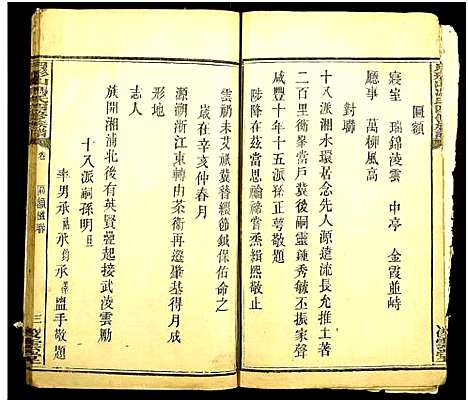 匾額
寢室 瑞錦凌雲 中亭 金霞並峙
廳事 萬柳風高
對聯
十八派湘水環居念先人源遠流長允推土著
二百里衡峯開戶冀後嗣靈鍾秀毓丕振家聲
咸豐十年十五派孫正蕚敬題
陟降在茲當思禴禘嘗烝緝熙敬止
雲礽未艾願冀晉經節鉞保佑命之
歲在辛亥仲春月
源溯浙江東轉由茶衡再遷肇基得月成
形地
志人
族開湘浦北後有英賢疊起接武淩雲勵
十八派嗣孫明
率男承 承 承 盥手敬題
卷 匾額對聯
三